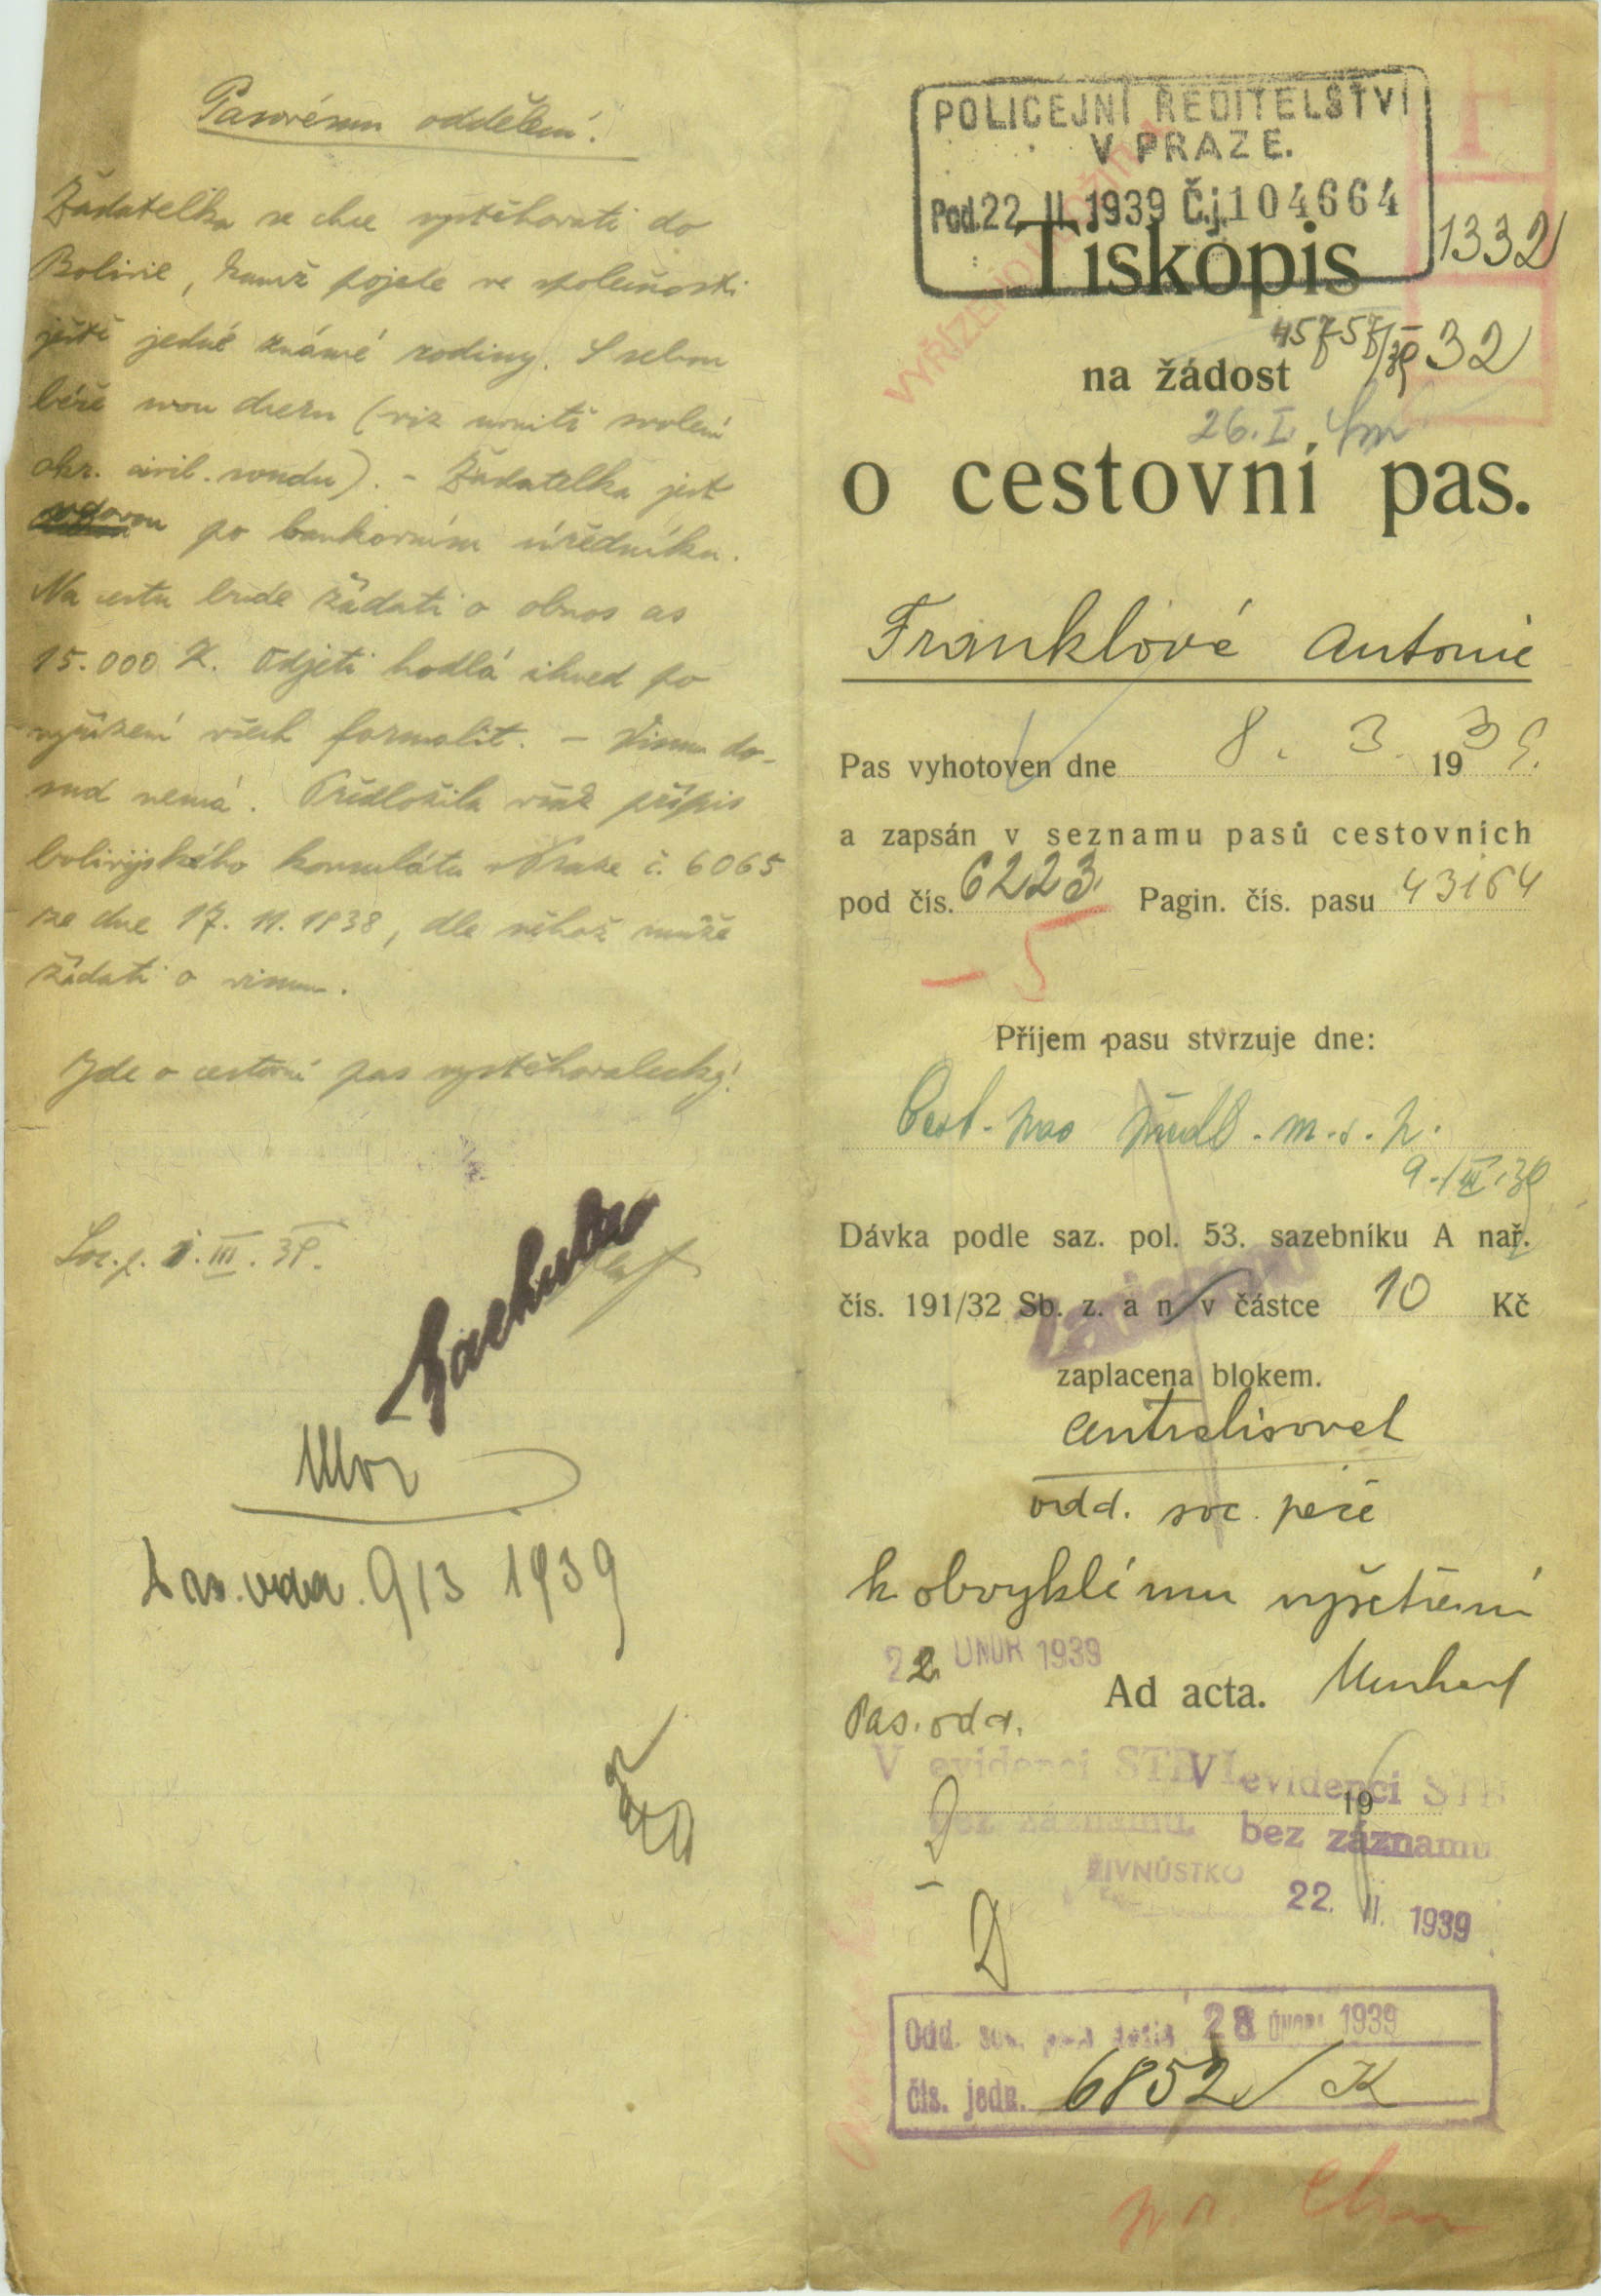 Pasovému oddělení.
Žadatelka se chce vystěhovati do
Bolivie, kamž pojede ve společnosti
ještě jedné známé rodiny. S sebou
béře svou dceru (viz uvnitř svolení
okr. civil. soudu). - Žadatelka jest
vdovou po bankovním úředníku.
Na cestu bude žádati o obnos as
15.000 K. Odjeti hodlá ihned po
vyřízení všech formalit. - Visum do-
sud nemá. Předložila však přípis
bolivijského konsulátu v Praze č. 6065
ze dne 17. 11. 1938, dle něhož může
žádati o visum.
Jde o cestovní pas vystěhovalecký!
Soc. p. 1. III. 39.
Pas. odd. 9/3 1939
POLICEJNÍ ŘEDITELSTVÍ
V PRAZE.
Pod. 22. II. 1939 Č.j. 104664
1332
Tiskopis
32
na žádost
26. I.
o cestovní pas.
Franklové Antonie
Pas vyhotoven dne 8. 3. 1939.
a zapsán v seznamu pasů cestovních
pod čís. 6223. Pagin. čís. pasu 43164
- 5
Příjem pasu stvrzuje dne:
Cest. pas předl. m. s. p.
9./III.39
Dávka podle saz. pol. 53. sazebníku A nař.
čís. 191/32 Sb. z. a n. v částce 10 Kč
zaplacena blokem.
centralisovat
odd. soc. péče
k obvyklému vyšetření
22 ÚNOR 1939
Ad acta.
Pas. odd.
V evidenci STB
bez záznamu.
V evidenci STB
19
bez záznamu
ŽIVNOSTKO
22. II. 1939
D
Odd. soc. 28 ÚNORA 1939
čís. jedn. 6852/K